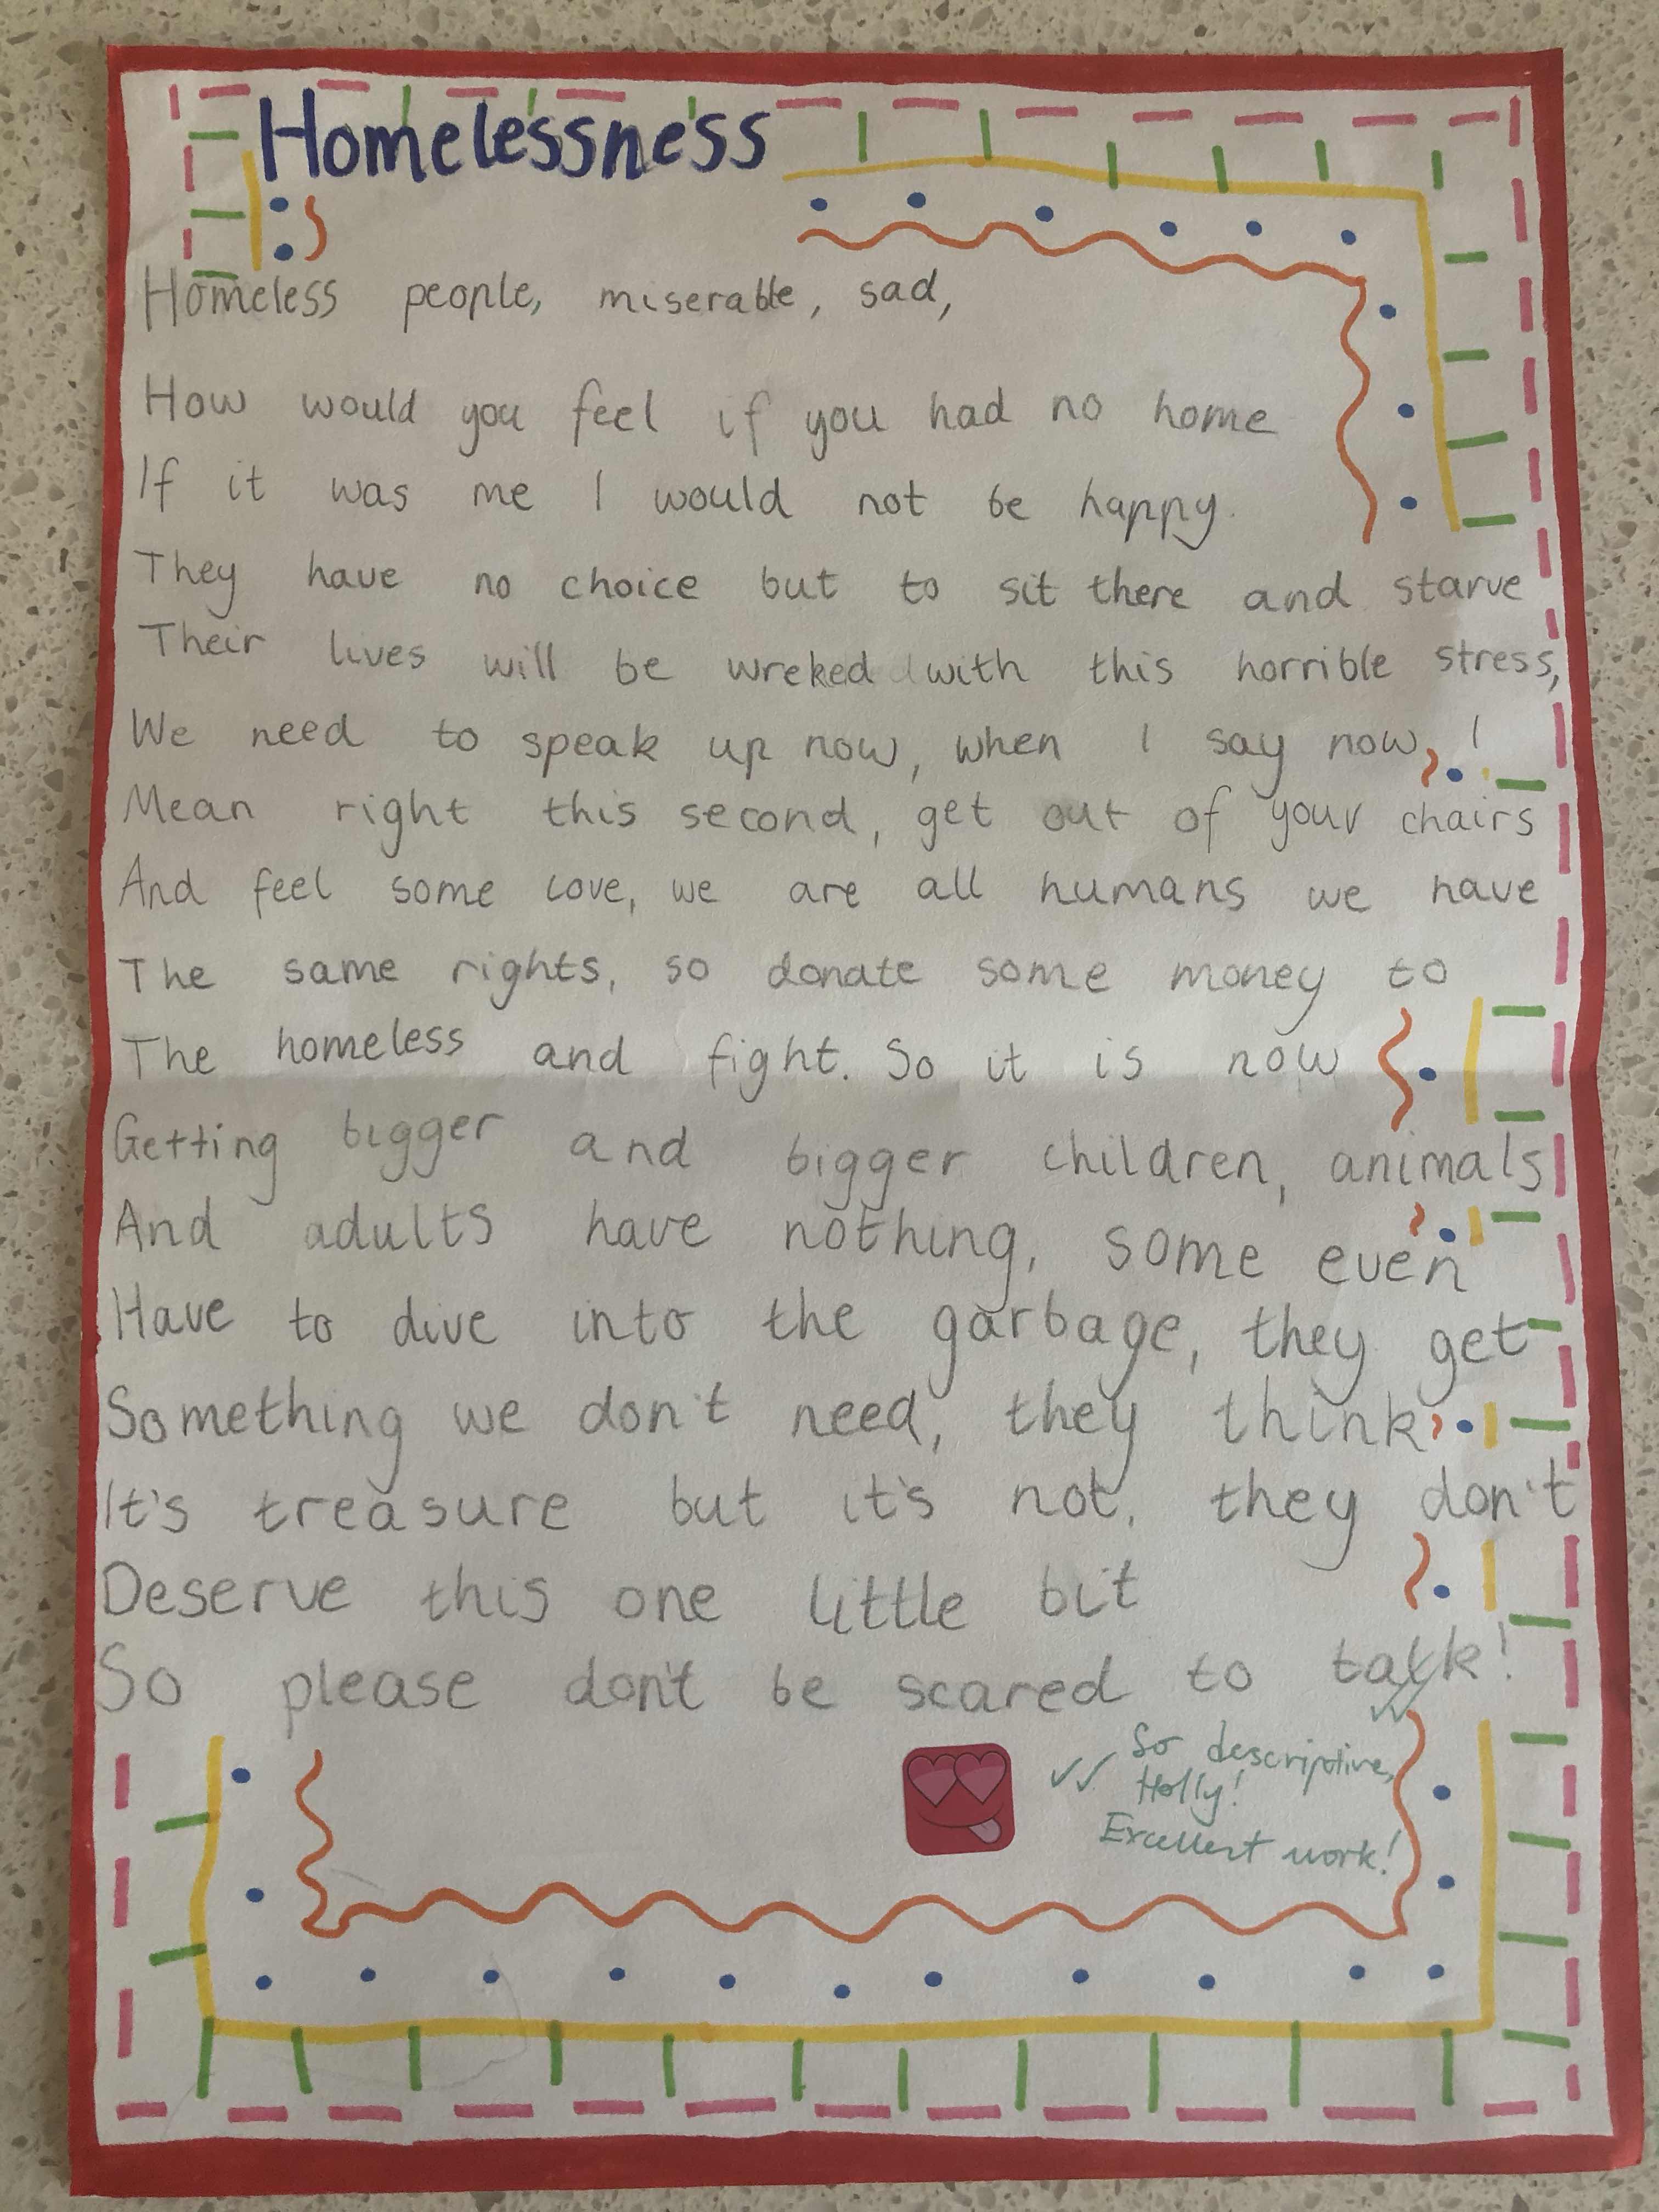 Homelessness
Homeless people, miserable, sad,
How would you feel if you had no home
If it was me I would not be happy.
They have no choice but to sit there and starve
Their lives will be wreked with this horrible stress,
We need to speak up now, when I say now, I
Mean right this second, get out of your chairs
And feel some love, we are all humans we have
The same rights, so donate some money to
The homeless and fight. So it is now
Getting bigger and bigger children, animals
And adults have nothing, some even
Have to dive into the garbage, they get
Something we don't need, they think
It's treasure but it's not, they don't
Deserve this one little bit
So please don't be scared to talk!
So descriptive,
Holly!
Excellent work!